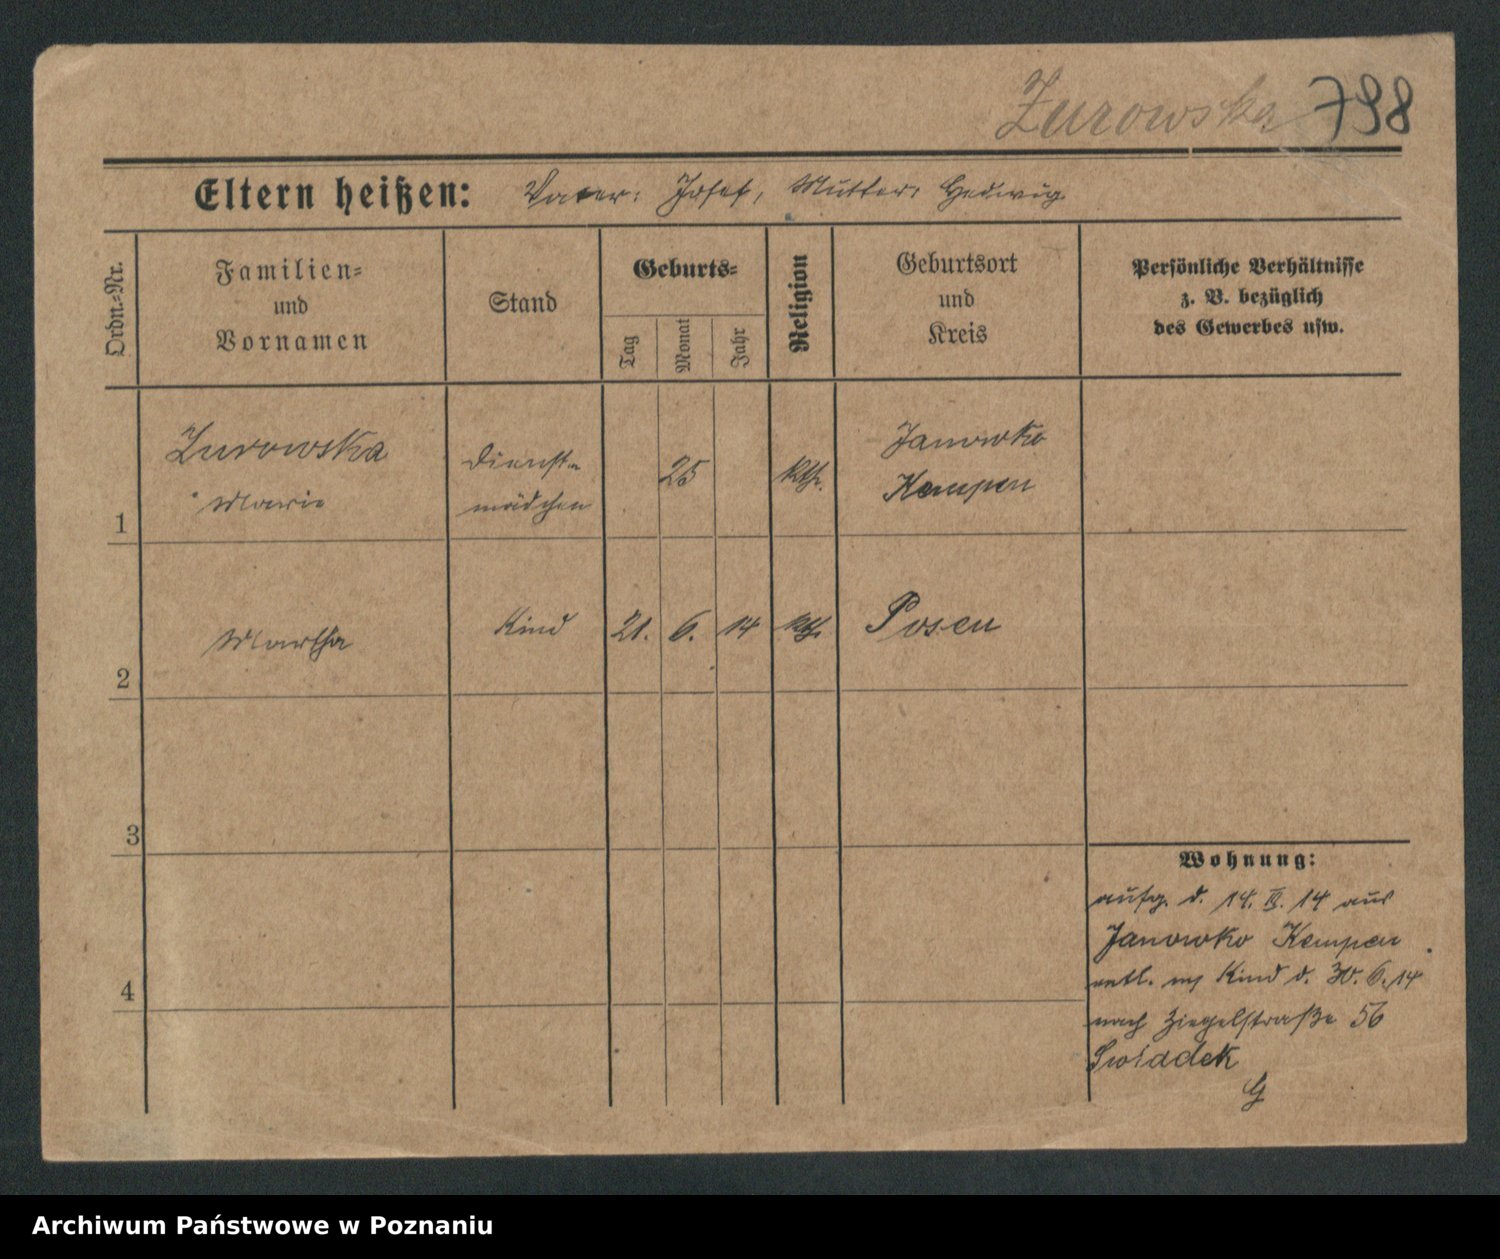 Zurowska 798
Eltern heißen: Vater: Josef, Mutter: Hedwig
Ordn.-Nr.
Familien-
und
Vornamen
Stand
Geburts-
Tag
Monat
Jahr
Religion
Geburtsort
und
Kreis
Persönliche Verhältnisse
z. B. bezüglich
des Gewerbes usw.
1
Zurowska
Marie
Dienst-
mädchen
25
kth.
Janowko
Kempen
2
Martha
Kind
21. 6. 14
kth.
Posen
3
4
Wohnung:
aufg. d. 14. 14 aus
Janowko Kempen
entl. Kind d. 30. 6. 14
nach Ziegelstraße 56
Swiadek
G
Archiwum Państwowe w Poznaniu